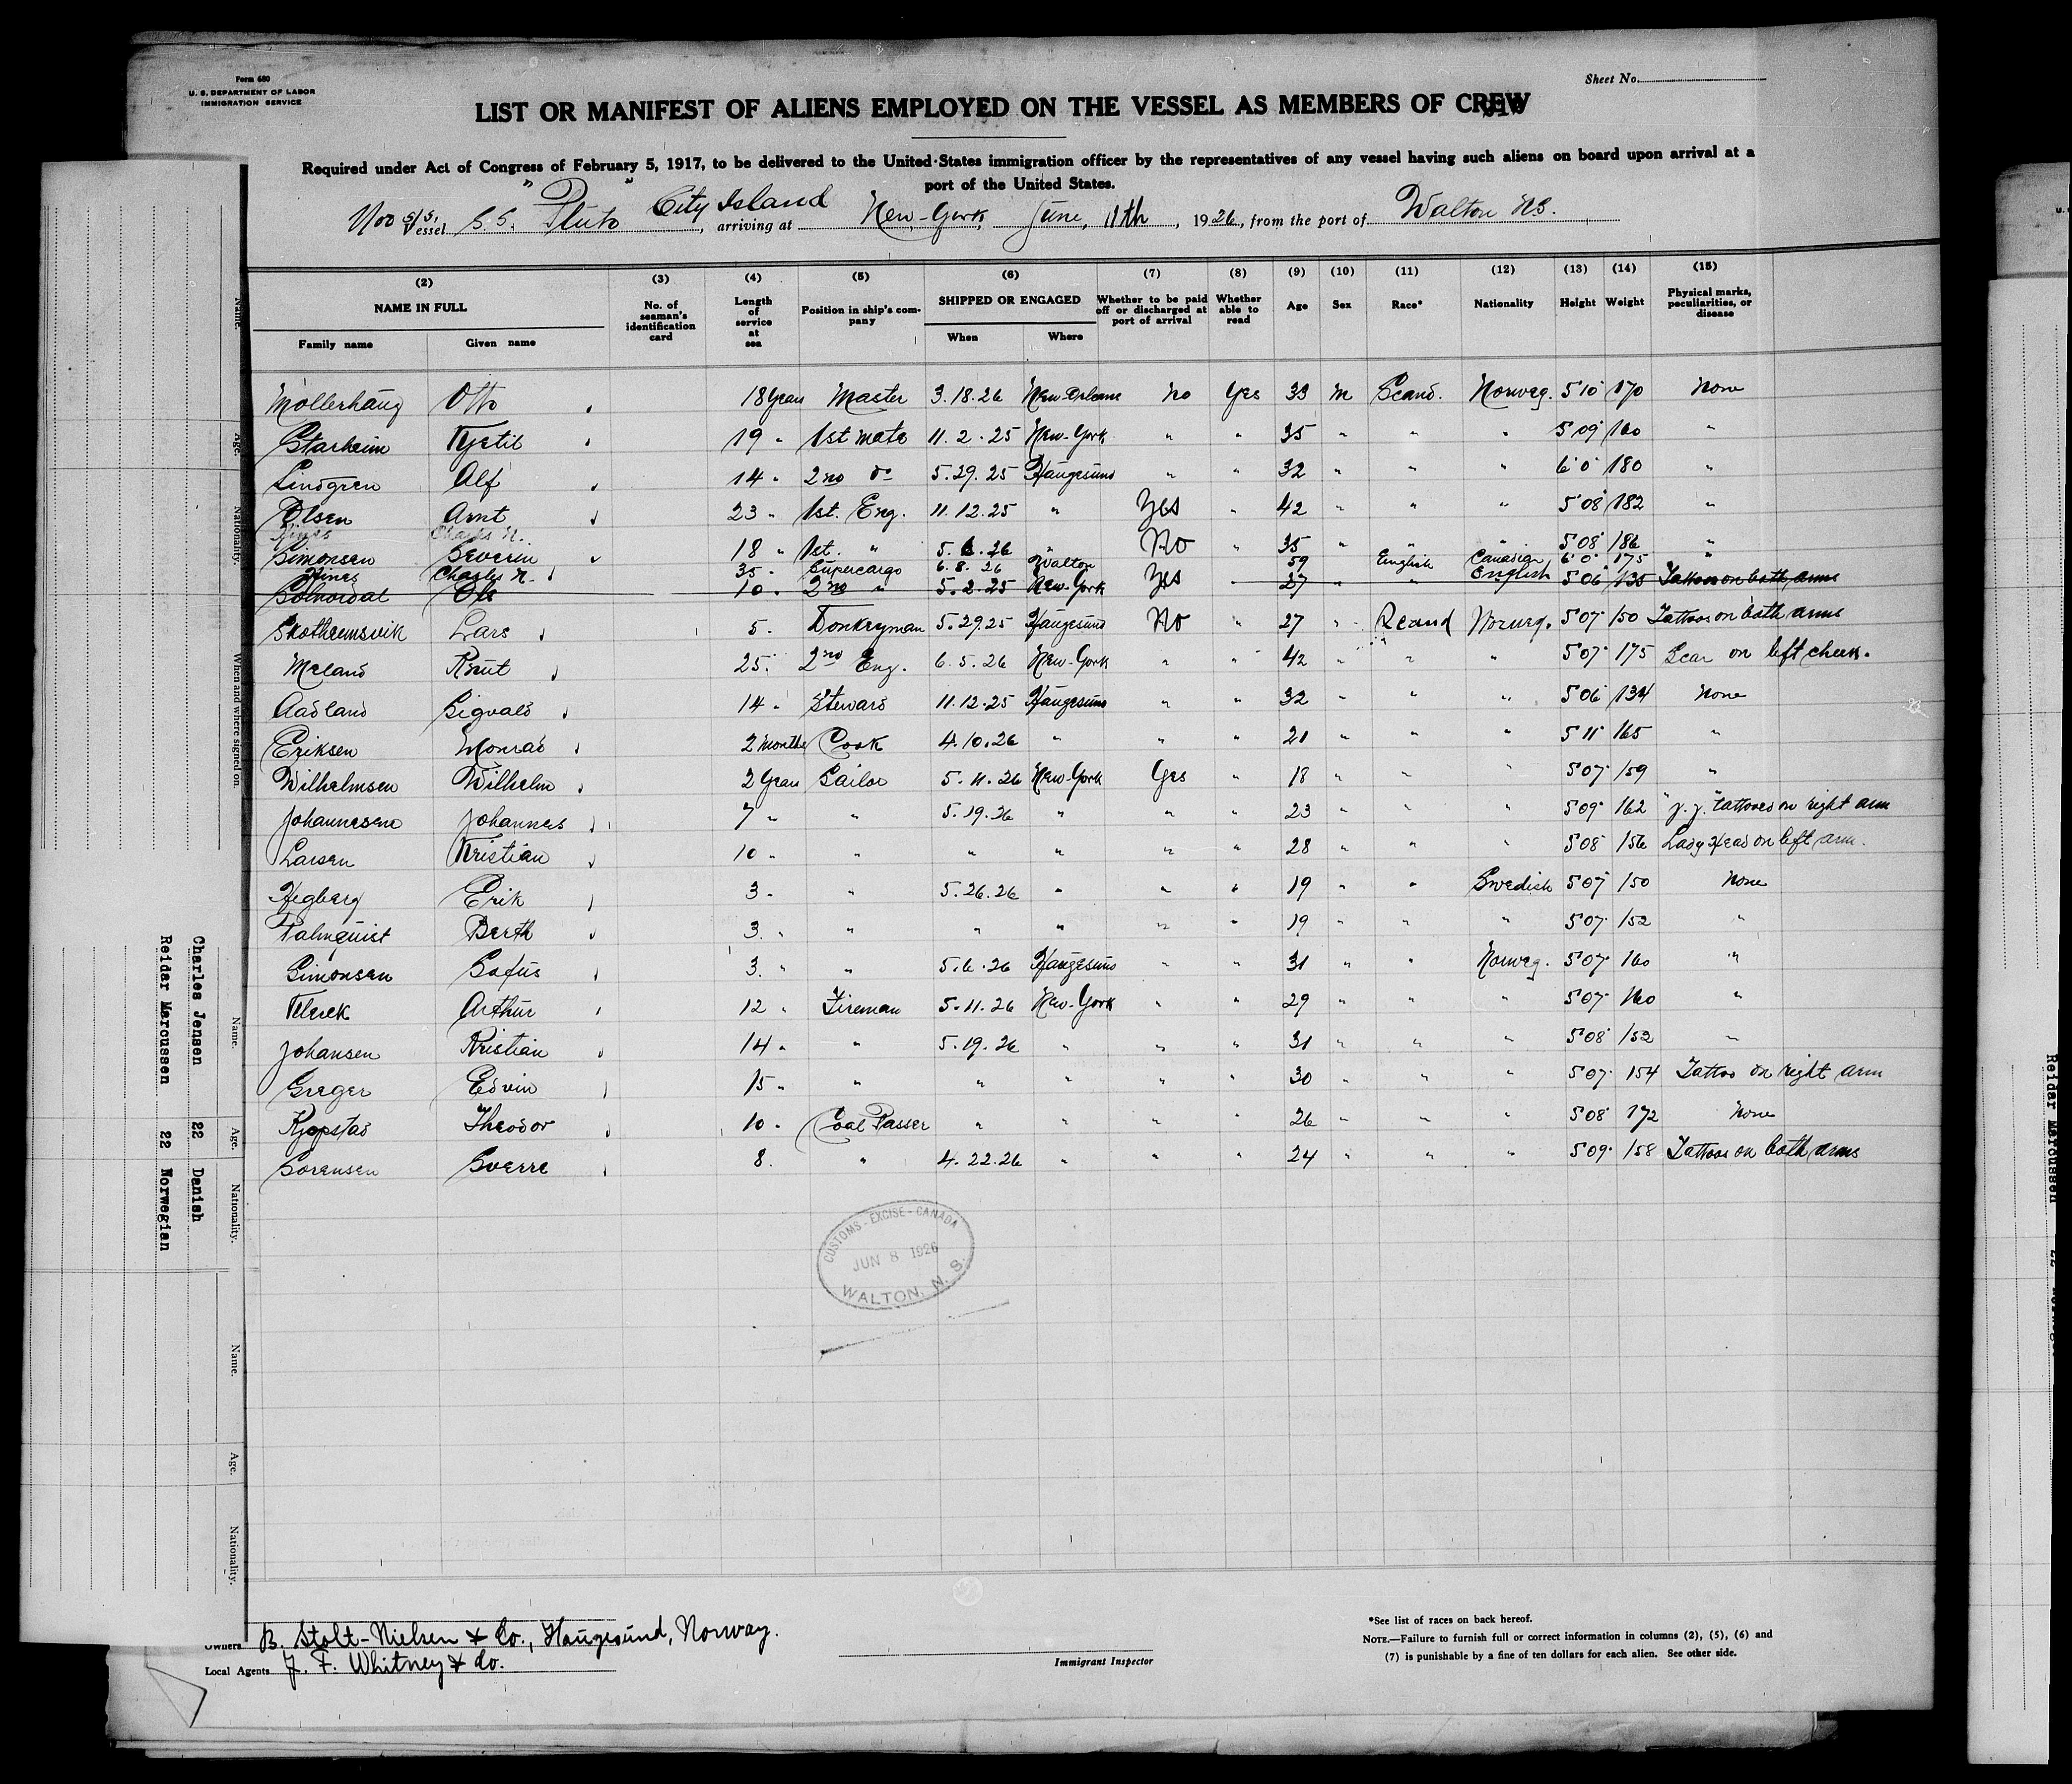 Form 680
U. S. DEPARTMENT OF LABOR
IMMIGRATION SERVICE
Sheet No.
LIST OR MANIFEST OF ALIENS EMPLOYED ON THE VESSEL AS MEMBERS OF CREW
Required under Act of Congress of February 5, 1917, to be delivered to the United States immigration officer by the representatives of any vessel having such aliens on board upon arrival at a
port of the United States.
Nor S/S. Vessel S.S. "Pluto", City Island arriving at New-York, June, 11th, 1926, from the port of Walton NS.
(2) (3) (4) (5) (6) (7) (8) (9) (10) (11) (12) (13) (14) (15)
NAME IN FULL No. of seaman's identification card Length of service at sea Position in ship's company SHIPPED OR ENGAGED Whether to be paid off or discharged at port of arrival Whether able to read Age Sex Race* Nationality Height Weight Physical marks, peculiarities, or disease
Family name Given name When Where
Mollerhaug Otto 18 Years Master 3.18.26 New-Orleans No Yes 33 M Scand. Norweg. 5'10" 170 None
Starheim Kjetil 19 " 1st mate 11.2.25 New-York " " 35 " " " 5'09" 160 "
Lindgren Alf 14 " 2nd do 5.29.25 Haugesund " " 32 " " " 6'0" 180 "
Olsen Arnt 23 " 1st. Eng. 11.12.25 " Yes " 42 " " " 5'08" 182 "
Hines Charles N.
Simonsen Severin 18 " 1st. " 5.6.26 " No " 35 " " " 5'08" 186 "
Hines Charles N. 35 " Supercargo 6.8.26 Walton 59 English Canadian 6'0" 175 "
Solnordal Ole 10 " 2nd " 5.2.25 New-York Yes 27 " " English 5'06" 135 Tattoos on both arms
Skotheimsvik Lars 5 " Donkeyman 5.29.25 Haugesund No 27 " Scand Norweg. 5'07" 150 Tattoos on both arms
Meland Knut 25 " 2nd Eng. 6.5.26 New-York " " 42 " " " 5'07" 175 Scar on left cheek.
Aadland Sigvald 14 " Steward 11.12.25 Haugesund " " 32 " " " 5'06" 134 None
Eriksen Monrad 2 months Cook 4.10.26 " " " 21 " " " 5'11" 165 "
Wilhelmsen Wilhelm 2 Years Sailor 5.11.26 New-York Yes " 18 " " " 5'07" 159 "
Johannesene Johannes 7 " " 5.19.26 " " " 23 " " " 5'09" 162 "J.J." tattoved on right arm
Larsen Kristian 10 " " " " " " 28 " " " 5'08" 156 Lady Head on left arm.
Hegberg Erik 3 " " 5.26.26 " " " 19 " " Swedish 5'07" 150 None
Palmquist Berth 3 " " " " " " 19 " " " 5'07" 152 "
Simonsen Sofus 3 " " 5.6.26 Haugesund " " 31 " " Norweg. 5'07" 160 "
Arthur 12 " Fireman 5.11.26 New-York " " 29 " " " 5'07" 160 "
Johansen Kristian 14 " " 5.19.26 " " " 31 " " " 5'08" 152 "
Greger Edvin 15 " " " " " " 30 " " " 5'07" 154 Tattoo on right arm
Kjopstad Theodor 10 " Coal Passer " " " " 26 " " " 5'08" 172 None
Sorensen Sverre 8 " 4.22.26 " " " 24 " " " 5'09" 158 Tattoos on both arms
CUSTOMS - EXCISE - CANADA
JUN 8 1926
WALTON, N. S.
Owners B. Stolt-Nielsen & Co., Haugesund, Norway.
Local Agents J. F. Whitney & Co.
Immigrant Inspector
*See list of races on back hereof.
NOTE.—Failure to furnish full or correct information in columns (2), (5), (6) and
(7) is punishable by a fine of ten dollars for each alien. See other side.
Name. Age. Nationality. When and where signed on.
Name. Age. Nationality.
Charles Jensen 22 Danish
Reidar Maroussen 22 Norwegian
Name. Age. Nationality.